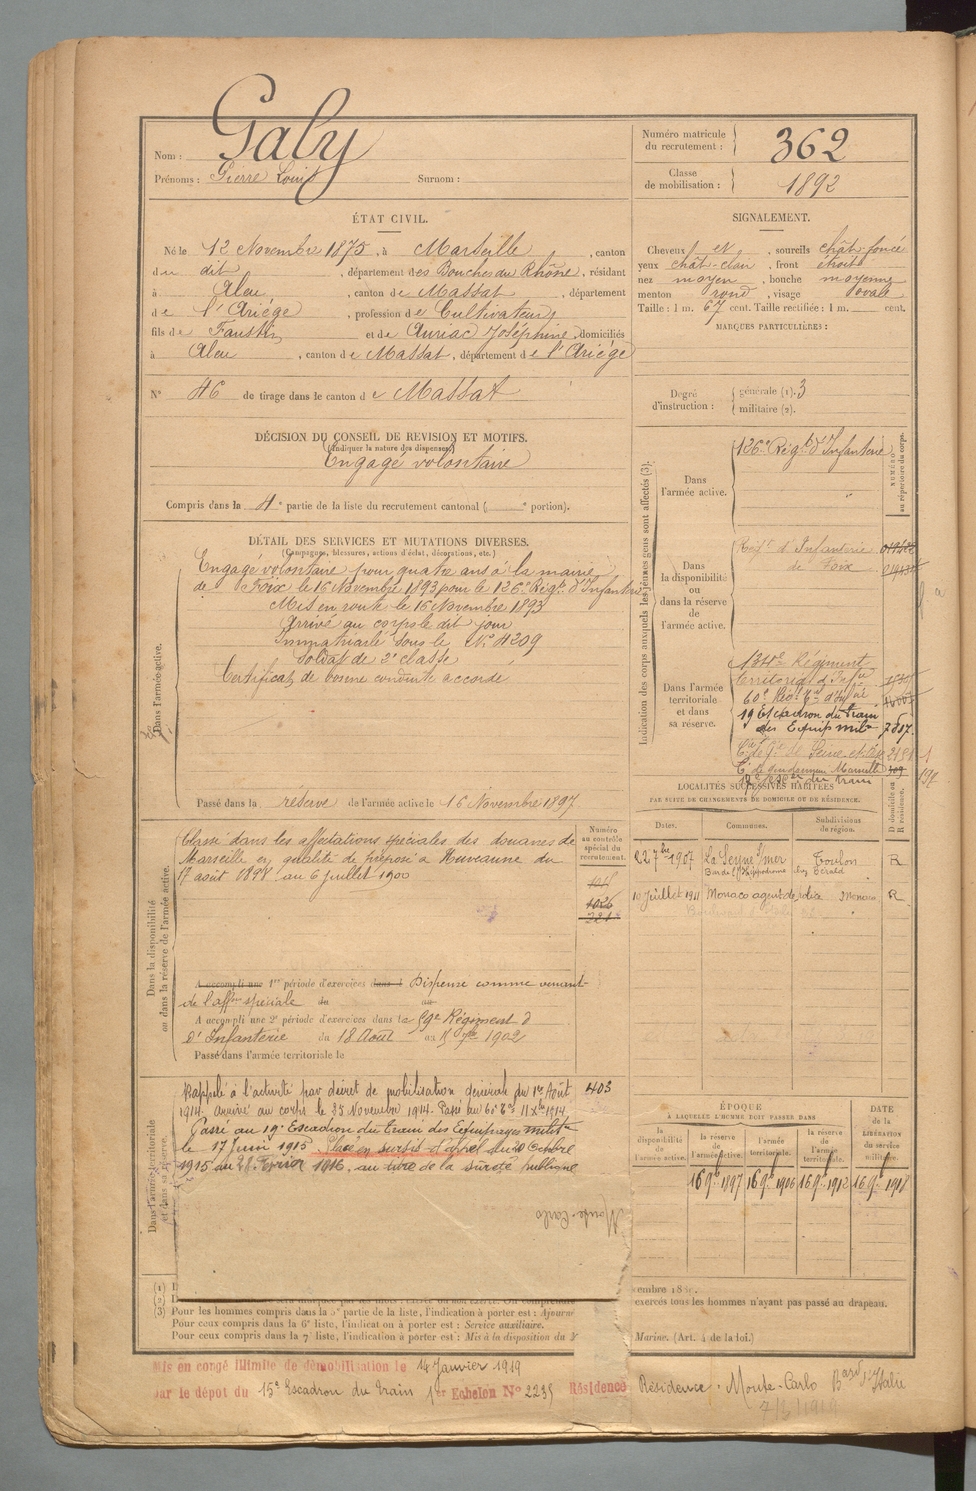 Nom : Galy
Prénoms : Pierre Louis Surnom :
Numéro matricule du recrutement : 362
Classe de mobilisation : 1892
ÉTAT CIVIL.
Né le 12 Novembre 1875, à Marseille, canton
du dit, département des Bouches du Rhône, résidant
à Aleu, canton de Massat, département
de l'Ariége, profession de Cultivateur
fils de Faustin et de Auriac Joséphine, domiciliés
à Aleu, canton de Massat, département de l'Ariége
N° 46 de tirage dans le canton de Massat
SIGNALEMENT.
Cheveux et, sourcils chât-foncé
yeux chât-clair, front étroit
nez moyen, bouche moyenne
menton rond, visage ovale
Taille : 1 m. 67 cent. Taille rectifiée : 1 m. cent.
MARQUES PARTICULIÈRES :
Degré d'instruction : générale (1). 3
militaire (2).
DÉCISION DU CONSEIL DE REVISION ET MOTIFS.
(Indiquer la nature des dispenses)
Engagé volontaire
Compris dans la 4e partie de la liste du recrutement cantonal ( portion).
DÉTAIL DES SERVICES ET MUTATIONS DIVERSES.
(Campagnes, blessures, actions d'éclat, décorations, etc.)
Dans l'armée active.
Engagé volontaire pour quatre ans à la mairie
de Foix le 16 Novembre 1893 pour le 126e Régt d'Infanterie
Mis en route le 16 Novembre 1893
Arrivé au corps le dit jour
Immatriculé sous le N° 4209
Soldat de 2e classe
Certificat de bonne conduite accordé
Passé dans la réserve de l'armée active le 16 Novembre 1897
Indication des corps auxquels les jeunes gens sont affectés (3).
NUMÉRO au répertoire du corps.
Dans l'armée active.
126e Régt d'Infanterie
Dans la disponibilité ou dans la réserve de l'armée active.
Régt d'Infanterie
de Foix
Dans l'armée territoriale et dans sa réserve.
134e Régiment
Territorial d'Infie
19 Escadron du train
des Equip milre 7517.
LOCALITÉS SUCCESSIVES HABITÉES
PAR SUITE DE CHANGEMENTS DE DOMICILE OU DE RÉSIDENCE.
Dates. Communes. Subdivisions de région. D domicile ou R résidence.
22 7bre 1907 La Seyne s/mer Toulon R
10 Juillet 1911 Monaco agent de police Monaco R
Dans la disponibilité ou dans la réserve de l'armée active.
Numéro au contrôle spécial du recrutement.
Classé dans les affectations spéciales des douanes de
Marseille en qualité de préposé à Huveaune du
17 août 1898 au 6 juillet 1900
1026
A accompli une 1re période d'exercices dans l Dispensé comme venant
de l'affon spéciale du au
A accompli une 2e période d'exercices dans le 59e Régiment d
d'Infanterie du 18 Août au 1902
Passé dans l'armée territoriale le
Dans l'armée territoriale et dans sa réserve.
Rappelé à l'activité par décret de mobilisation générale du 1er Août 403
1914. Arrivé au corps le 25 Novembre 1914. Passé au 60e Tal 11 Xbre 1914
Passé au 19e Escadron du Train des Equipages milit
le 17 Juin 1915. Placé en sursis d'appel du 20 Octobre
1915 au 28 Février 1916, au titre de la sûreté publique
Monte-Carlo
ÉPOQUE
À LAQUELLE L'HOMME DOIT PASSER DANS
DATE de la LIBÉRATION du service militaire.
la disponibilité de l'armée active. la réserve de l'armée active. l'armée territoriale. la réserve de l'armée territoriale.
16 9bre 1897 16 9bre 1906 16 9bre 1912 16 9bre 1918
(1)
(2)
exercés tous les hommes n'ayant pas passé au drapeau.
(3) Pour les hommes compris dans la 5e partie de la liste, l'indication à porter est : Ajourné
Pour ceux compris dans la 6e liste, l'indication à porter est : Service auxiliaire.
Pour ceux compris dans la 7e liste, l'indication à porter est : Mis à la disposition du Marine. (Art. 4 de la loi.)
Mis en congé illimité de démobilisation le 14 Janvier 1919
par le dépôt du 15e Escadron du Train 1er Echelon N° 2235 Résidence
Résidence : Monte-Carlo Bard d'Italie